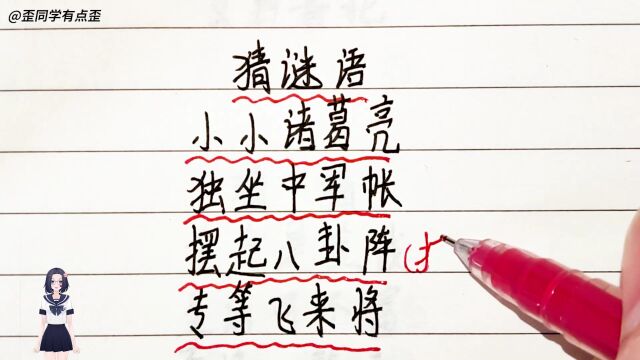 @歪同学有点歪
猜谜语
小小诸葛亮
独坐中军帐
摆起八卦阵
专等飞来将